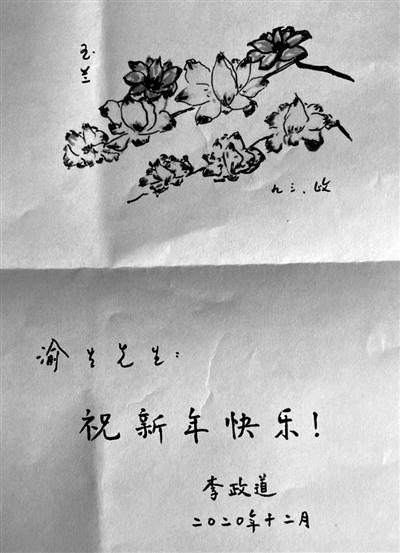 玉兰
九三、政
渝生先生：
祝新年快乐！
李政道
2020年十二月